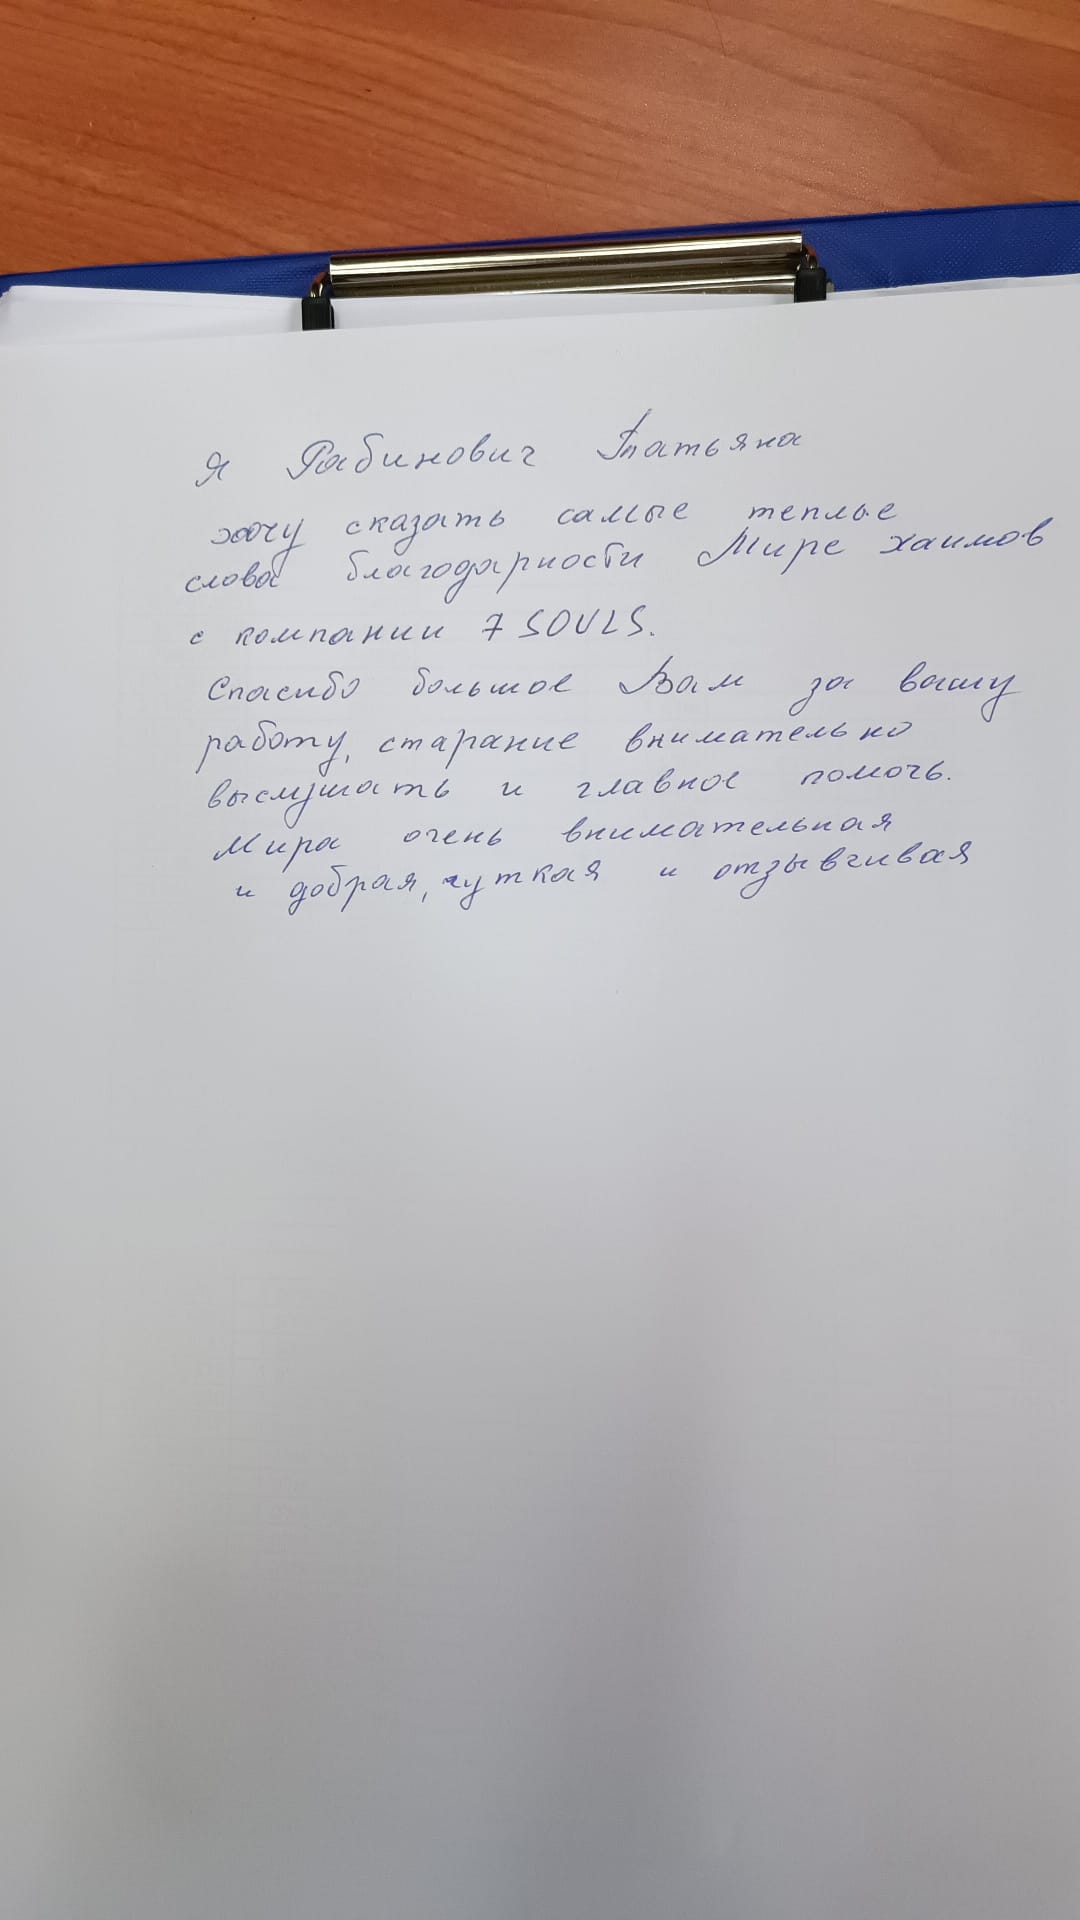 Я Рабинович Татьяна
хочу сказать самые теплые
слова благодарности Мире хаимов
с компании 7 SOULS.
Спасибо большое Вам за вашу
работу, старание внимательно
выслушать и главное помочь.
Мира очень внимательная
и добрая, чуткая и отзывчивая